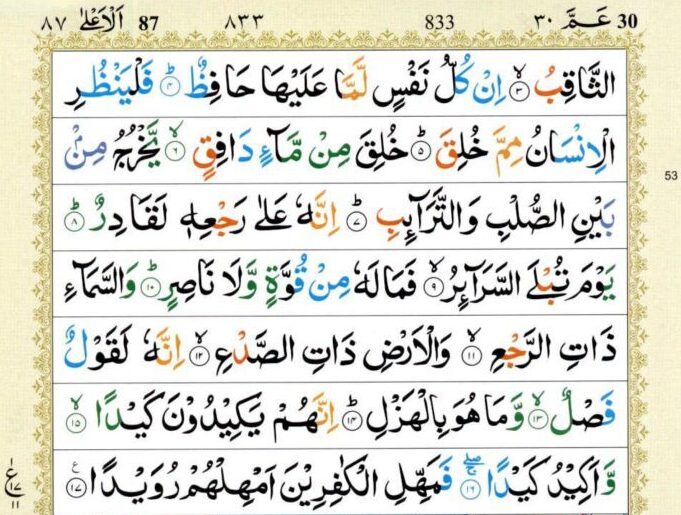 30 عَمَّ ٣٠ 833 ٨٣٣ 87 اَلْاَعْلٰى ٨٧
الثَّاقِبُ ۙ﴿۳﴾ اِنْ كُلُّ نَفْسٍ لَّمَّا عَلَيْهَا حَافِظٌ ؕ﴿۴﴾ فَلْيَنْظُرِ
الْاِنْسَانُ مِمَّ خُلِقَ ؕ﴿۵﴾ خُلِقَ مِنْ مَّآءٍ دَافِقٍ ۙ﴿۶﴾ يَّخْرُجُ مِنْۢ
53
بَيْنِ الصُّلْبِ وَالتَّرَآئِبِ ؕ﴿۷﴾ اِنَّهٗ عَلٰى رَجْعِهٖ لَقَادِرٌ ؕ﴿۸﴾
يَوْمَ تُبْلَى السَّرَآئِرُ ۙ﴿۹﴾ فَمَا لَهٗ مِنْ قُوَّةٍ وَّلَا نَاصِرٍ ؕ﴿۱۰﴾ وَالسَّمَآءِ
ذَاتِ الرَّجْعِ ۙ﴿۱۱﴾ وَالْاَرْضِ ذَاتِ الصَّدْعِ ۙ﴿۱۲﴾ اِنَّهٗ لَقَوْلٌ
فَصْلٌ ۙ﴿۱۳﴾ وَّمَا هُوَ بِالْهَزْلِ ؕ﴿۱۴﴾ اِنَّهُمْ يَكِيْدُوْنَ كَيْدًا ۙ﴿۱۵﴾
وَّاَكِيْدُ كَيْدًا ۚۖ﴿۱۶﴾ فَمَهِّلِ الْكٰفِرِيْنَ اَمْهِلْهُمْ رُوَيْدًا ﴿۱۷﴾ ع
ع ١٧ ١١